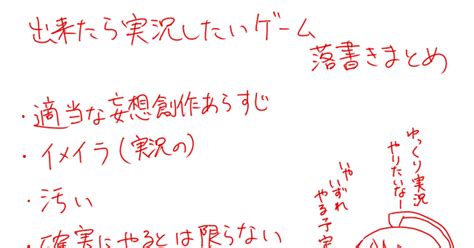 出来たら実況したいゲーム
落書きまとめ
・適当な妄想創作あらすじ
・イメイラ(実況の)
・汚い
・確実にやるとは限らない
ゆっくり実況
やりたいなー
いやいずれ
やる予定